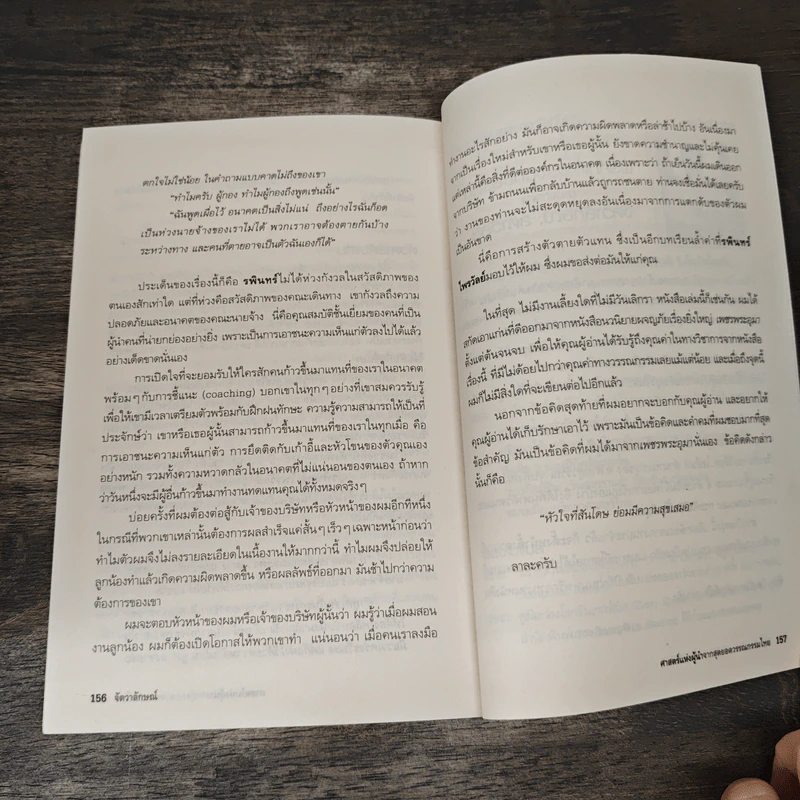 ตกใจไม่ใช่น้อย ในคำถามแบบคาดไม่ถึงของเขา
“ทำไมครับ ผู้กอง ทำไมผู้กองถึงพูดเช่นนั้น”
“ฉันพูดเผื่อไว้ อนาคตเป็นสิ่งไม่แน่ ถึงอย่างไรฉันก็อด
เป็นห่วงนายจ้างของเราไม่ได้ พวกเราอาจต้องตายกันบ้าง
ระหว่างทาง และคนที่ตายอาจเป็นตัวฉันเองก็ได้”
ประเด็นของเรื่องนี้ก็คือ รพินทร์ไม่ได้ห่วงกังวลในสวัสดิภาพของ
ตนเองสักเท่าใด แต่ที่ห่วงคือสวัสดิภาพของคณะเดินทาง เขากังวลถึงความ
ปลอดภัยและอนาคตของคณะนายจ้าง นี่คือคุณสมบัติชั้นเยี่ยมของคนที่เป็น
ผู้นำคนที่น่ายกย่องอย่างยิ่ง เพราะเป็นการเอาชนะความเห็นแก่ตัวลงไปได้แล้ว
อย่างเด็ดขาดนั่นเอง
การเปิดใจที่จะยอมรับให้ใครสักคนก้าวขึ้นมาแทนที่ของเราในอนาคต
พร้อมๆ กับการชี้แนะ (coaching) บอกเขาในทุกๆ อย่างที่เขาสมควรรับรู้
เพื่อให้เขามีเวลาเตรียมตัวพร้อมกับฝึกฝนทักษะ ความรู้ความสามารถให้เป็นที่
ประจักษ์ว่า เขาหรือเธอผู้นั้นสามารถก้าวขึ้นมาแทนที่ของเราในทุกเมื่อ คือ
การเอาชนะความเห็นแก่ตัว การยึดติดกับเก้าอี้และหัวโขนของตัวคุณเอง
อย่างหนัก รวมทั้งความหวาดกลัวในอนาคตที่ไม่แน่นอนของตนเอง ถ้าหาก
ว่าวันหนึ่งจะมีผู้อื่นก้าวขึ้นมาทำงานทดแทนคุณได้ทั้งหมดจริงๆ
บ่อยครั้งที่ผมต้องต่อสู้กับเจ้าของบริษัทหรือหัวหน้าของผมอีกทีหนึ่ง
ในกรณีที่พวกเขาเหล่านั้นต้องการผลสำเร็จแค่สั้นๆ เร็วๆ เฉพาะหน้าก่อนว่า
ทำไมตัวผมจึงไม่ลงรายละเอียดในเนื้องานให้มากกว่านี้ ทำไมผมจึงปล่อยให้
ลูกน้องทำแล้วเกิดความผิดพลาดขึ้น หรือผลลัพธ์ที่ออกมา มันช้าไปกว่าความ
ต้องการของเขา
ผมจะตอบหัวหน้าของผมหรือเจ้าของบริษัทผู้นั้นว่า ผมรู้ว่าเมื่อผมสอน
งานลูกน้อง ผมก็ต้องเปิดโอกาสให้พวกเขาทำ แน่นอนว่า เมื่อคนเราลงมือ
156 จัตวาลักษณ์
ทำงานอะไรสักอย่าง มันก็อาจเกิดความผิดพลาดหรือล่าช้าไปบ้าง อันเนื่องมา
จากเป็นเรื่องใหม่สำหรับเขาหรือเธอผู้นั้น ยังขาดความชำนาญและไม่คุ้นเคย
แต่เหล่านี้คือสิ่งที่ดีต่อองค์กรในอนาคต เนื่องเพราะว่า ถ้าเย็นวันนี้ผมเดินออก
จากบริษัท ข้ามถนนเพื่อกลับบ้านแล้วถูกรถชนตาย ท่านจงเชื่อมั่นได้เลยครับ
ว่า งานของท่านจะไม่สะดุดหยุดลงอันเนื่องมาจากการแตกดับของตัวผม
เป็นอันขาด
นี่คือการสร้างตัวตายตัวแทน ซึ่งเป็นอีกบทเรียนล้ำค่าที่รพินทร์
ไพรวัลย์มอบไว้ให้ผม ซึ่งผมขอส่งต่อมันให้แก่คุณ
ในที่สุด ไม่มีงานเลี้ยงใดที่ไม่มีวันเลิกรา หนังสือเล่มนี้ก็เช่นกัน ผมได้
สกัดเอาแก่นที่ดีออกมาจากหนังสือนวนิยายผจญภัยเรื่องยิ่งใหญ่ เพชรพระอุมา
ตั้งแต่ต้นจนจบ เพื่อให้คุณผู้อ่านได้รับรู้ถึงคุณค่าในทางวิชาการจากหนังสือ
เรื่องนี้ ที่มีไม่ด้อยไปกว่าคุณค่าทางวรรณกรรมเลยแม้แต่น้อย และเมื่อถึงจุดนี้
ผมก็ไม่มีสิ่งใดที่จะเขียนต่อไปอีกแล้ว
นอกจากข้อคิดสุดท้ายที่ผมอยากจะบอกกับคุณผู้อ่าน และอยากให้
คุณผู้อ่านได้เก็บรักษาเอาไว้ เพราะมันเป็นข้อคิดและคำคมที่ผมชอบมากที่สุด
ข้อสำคัญ มันเป็นข้อคิดที่ผมได้มาจากเพชรพระอุมานั่นเอง ข้อคิดดังกล่าว
นั้นก็คือ
“หัวใจที่สันโดษ ย่อมมีความสุขเสมอ”
ลาละครับ
ศาสตร์แห่งผู้นำจากสุดยอดวรรณกรรมไทย 157